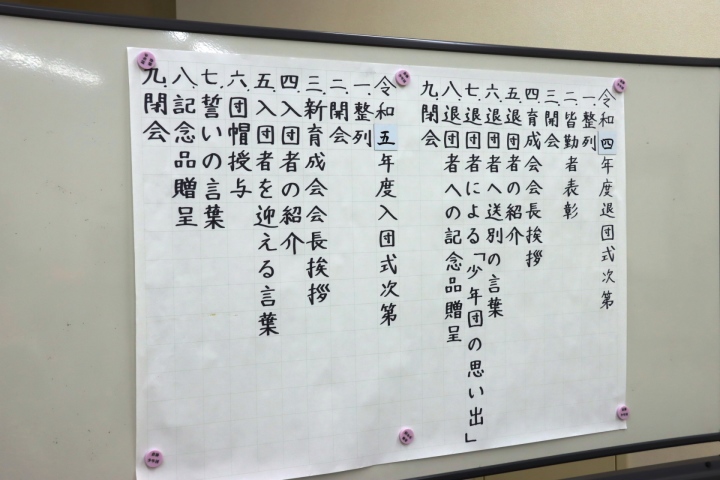 令和四年度退団式次第
一.整列
二.皆勤者表彰
三.開会
四.育成会会長挨拶
五.退団者の紹介
六.退団者へ送別の言葉
七.退団者による「少年団の思い出」
八.退団者への記念品贈呈
九.閉会
令和五年度入団式次第
一.整列
二.開会
三.新育成会会長挨拶
四.入団者の紹介
五.入団者を迎える言葉
六.団帽授与
七.誓いの言葉
八.記念品贈呈
九.閉会